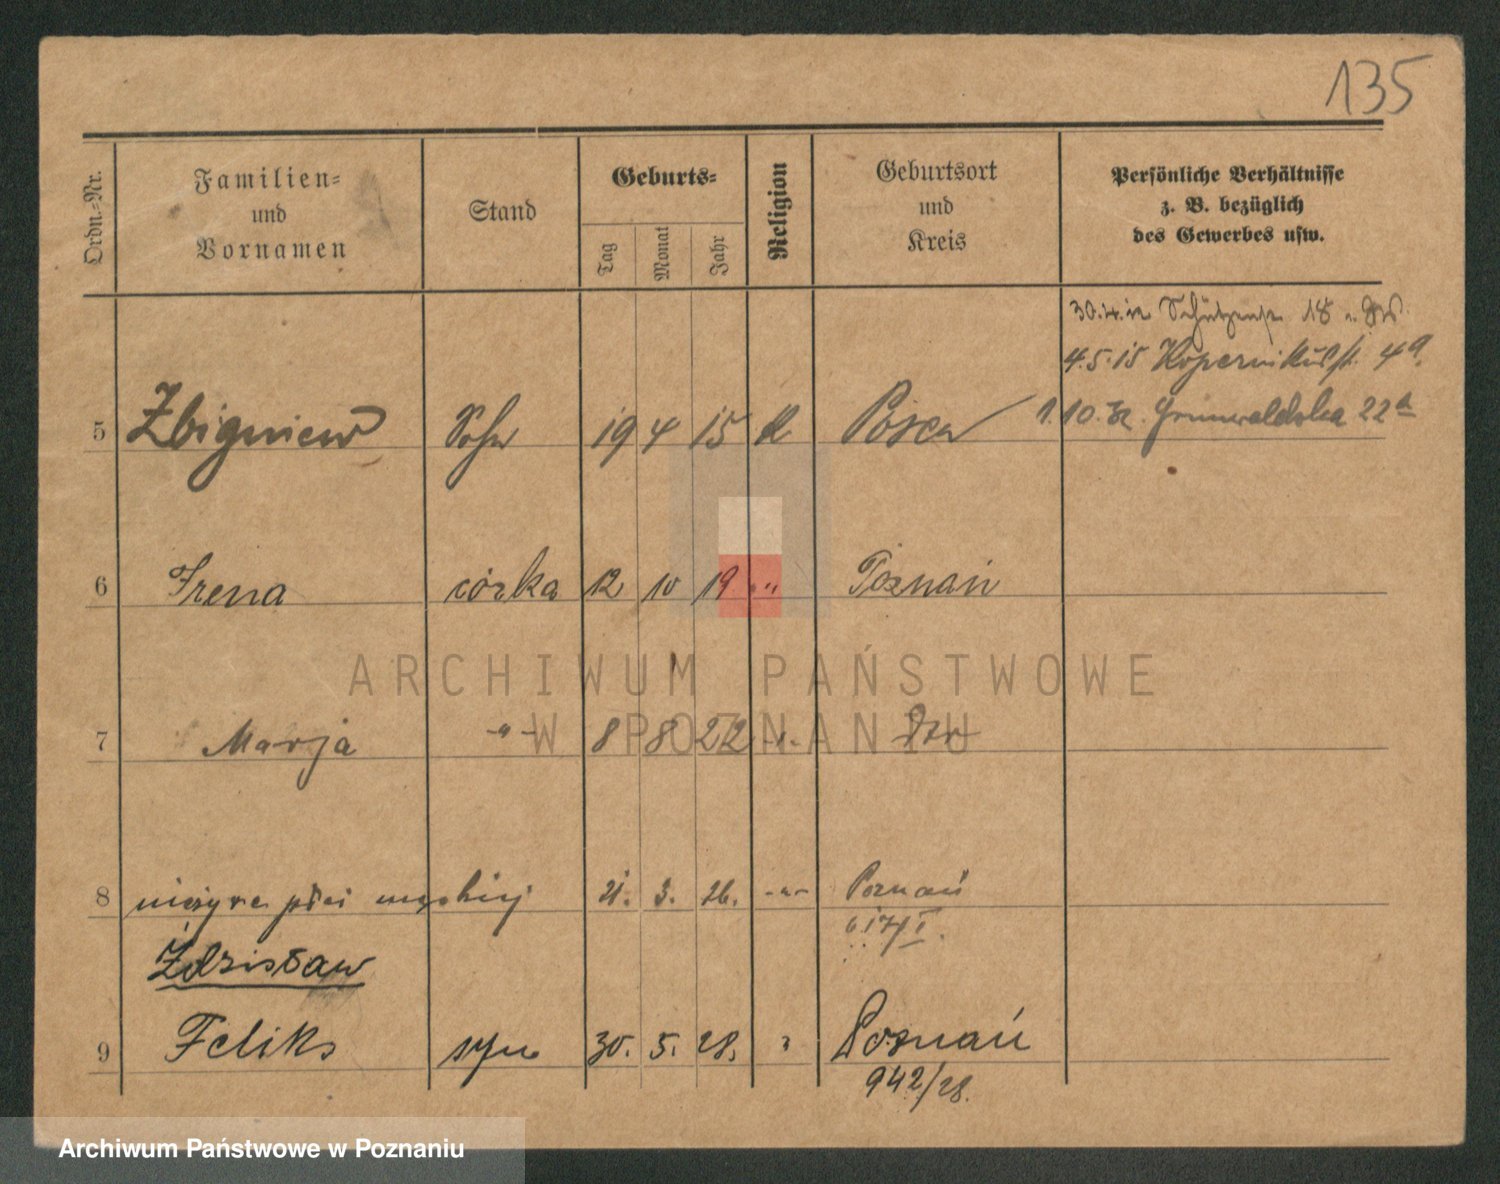 135
Ordn.-Nr.
Familien-
und
Vornamen
Stand
Geburts-
Tag
Monat
Jahr
Religion
Geburtsort
und
Kreis
Persönliche Verhältnisse
z. B. bezüglich
des Gewerbes usw.
18
4.5.15 Kopernikusst. 4a.
1.10. Grunwaldska 22a
5 Zbigniew Sohn 19 4 15 K Posen
6 Irena córka 12 10 19 " Poznań
7 Marja -"- 8 8 22 -"-
8 nieżywe płci męskiej 21. 3. 26. -"- Poznań
Zdzisław
9 Feliks syn 30. 5. 28. " Poznań
942/28.
ARCHIWUM PAŃSTWOWE
W POZNANIU
Archiwum Państwowe w Poznaniu